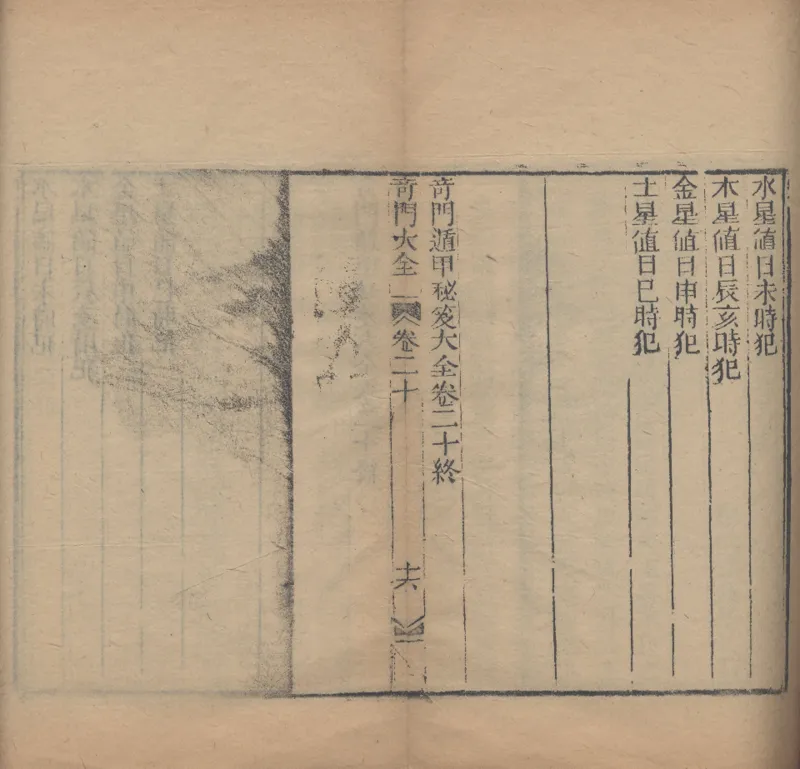 水星値日未時犯
木星値日辰亥時犯
金星値日申時犯
土星値日巳時犯
奇門遁甲秘笈大全卷二十終
奇門大全
卷二十
十六